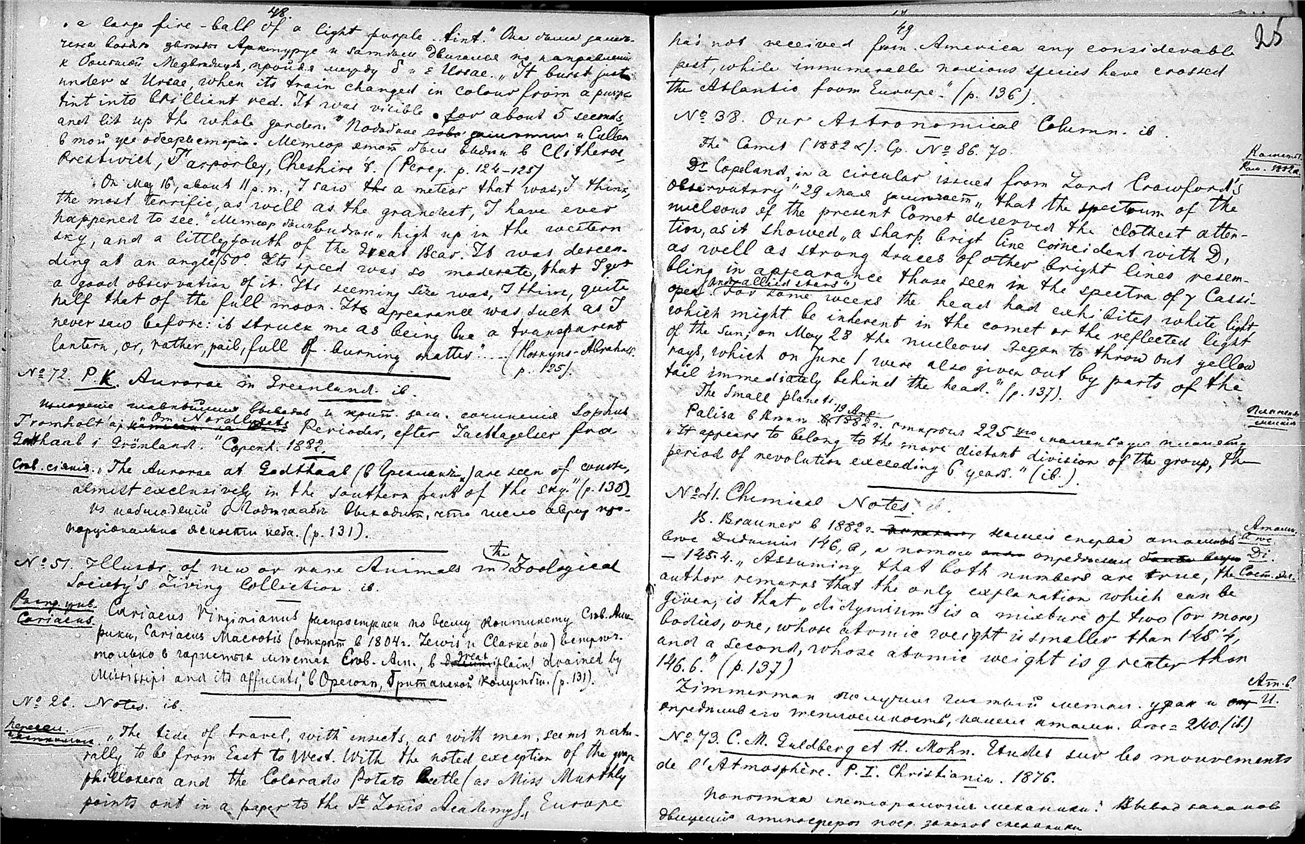 48
a large fire-ball of a light purple tint." Она была замѣ-
чена возлѣ Арктурус и затѣмъ двигалась по направленію
къ Большой Медвѣдицѣ, пройдя между δ и ε Ursae. "It burst just
under α Ursae, when its train changed in colour from a purple
tint into brilliant red. It was visible for about 5 seconds,
and lit up the whole garden." Подобное и Cullen
в той же обсерваторіи. Метеор этот был видѣн в Clitheroe,
Prestwich, Tarporley, Cheshire &. (p. 124-125)
"On May 16, about 11 p.m., I saw a meteor that was, I think,
the most terrific, as well as the grandest, I have ever
happened to see." Метеор был виден "high up in the western
sky, and a little south of the Great Bear. It was descen-
ding at an angle of 50° Its speed was so moderate, that I got
a good observation of it. Its seeming size was, I think, quite
half that of the full moon. Its apearance was such as I
never saw before: it struck me as being like a transparent
lantern, or, rather, pail, full of burning matter" (Hoskyns-Abrahall.
p. 125).
No 72. P.K. Aurorae in Greenland. ib.
изложение главнѣйших выводов и крит. зам. сочинения Sophus
Tromholt'a "Om Nordlysets Perioder, efter Iagttagelser fra
Godthaab i Grönland." Copenh. 1882.
Сѣв. сіянія. "The Aurorae at Godthaab (в Гренландіи) are seen of course,
almost exclusively in the southern part of the sky." (p. 130)
из наблюденій в Годтгаабѣ выходит, что число аврор про-
порціонально ясности неба. (p. 131).
No 51. Illustr. of new or rare Animals in the Zoological
Society's Living Collection. ib.
Cariacus. Cariacus Virginianus распространен по всему континенту Сѣв. Аме-
рики, Cariacus Macrotis (открыт в 1804 г. Lewis и Clarke'ом) встрѣч.
только в гористых мѣстах Сѣв. Ам., в "great plain drained by
Mississipi and its affluents," в Орегонѣ, Британской Колумбіи. (p. 131).
No 26. Notes. ib.
"The tide of travel, with insects, as with men, seems natu-
rally to be from East to West. With the noted exception of the grape
phylloxera and the Colorado Potato Beetle (as Miss Murthly
points out in a paper to the St Louis Academy), Europe
49
25
has not received from America any considerable
pest, while innumerable noxious species have crossed
the Atlantic from Europe." (p. 136).
No 38. Our Astronomical Column. ib.
The Comet (1882 α). Ср. No 86. 70.
Dr Copeland, in a circular issued from Lord Crawford's
Observatory" 29 мая замѣчает, "that the spectrum of the
nucleous of the present Comet deserved the clothest atten-
tion, as it showed, a sharp brigt line coincident with D,
as well as strong traces of other bright lines resem-
bling in appearance those seen in the spectra of γ Cassi-
opeï and allied stars". For some weeks the head had exhibited white light
which might be inherent in the comet or the reflected light
of the sun; on May 28 the nucleous began to throw out yellow
rays, which on June 1 were also given out by parts of the
tail immediately behind the head." (p. 137).
The Small planets.
Palisa в Вѣнѣ 19 Апр 1882 г. открыл 225ую маленькую планету
"It appears to belong to the more distant division of the group, the
period of revolution exceeding 6 years." (ib.).
No 41. Chemical Notes. ib.
B. Brauner в 1882 г. нашел сперва атомный
вѣс Didymius 146,6, а потом опредѣлил
– 145.4. "Assuming that both numbers are true, the
author remarks that the only explanation which can be
given, is that "didymium" is a mixture of two (or more)
bodies, one, whose atomic weight is smaller than 145.4,
and a second, whose atomic weight is greater than
146.6" (p. 137)
Zimmerman получил чистый метал. уран и
опредѣлив его теплоемкость, нашел атомн. вѣс = 240. (ib)
No 73. C. M. Guldberg et H. Mohn. Etudes sur les mouvements
de l'Atmosphère. P. I. Christiania. 1876.
Попытка метеорологич. механики. Вывод законов
движеній атмосферы поср. законов механики